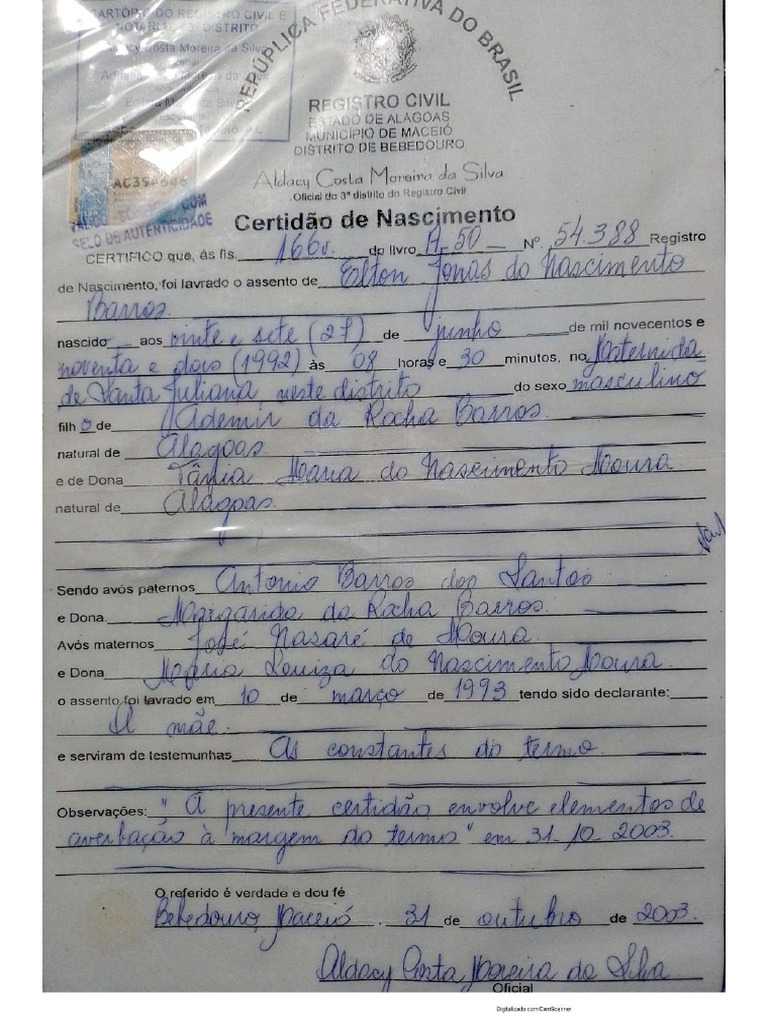 CARTÓRIO DO REGISTRO CIVIL E
NOTARIAL 3º DISTRITO
Aldacy Costa Moreira da Silva
REPÚBLICA FEDERATIVA DO BRASIL
REGISTRO CIVIL
ESTADO DE ALAGOAS
MUNICÍPIO DE MACEIÓ
DISTRITO DE BEBEDOURO
Aldacy Costa Moreira da Silva
Oficial do 3º distrito do Registro Civil
VÁLIDO SOMENTE COM
SELO DE AUTENTICIDADE
Certidão de Nascimento
CERTIFICO que, às fls. 166v. do livro A-50 Nº. 54.388 Registro
de Nascimento, foi lavrado o assento de Elton Jonas do Nascimento
Barros.
nascido aos vinte e sete (27) de junho de mil novecentos e
noventa e dois (1992) às 08 horas e 30 minutos, na Maternida
de Santa Juliana neste distrito do sexo masculino
filh o de Ademir da Rocha Barros.
natural de Alagoas
e de Dona Tânia Maria do Nascimento Moura
natural de Alagoas.
Sendo avós paternos Antonio Barros dos Santos
e Dona. Margarida da Rocha Barros.
Avós maternos José Nasaré de Moura.
e Dona Maria Louiza do Nascimento Moura.
o assento foi lavrado em 10 de março de 1993 tendo sido declarante:
A mãe.
e serviram de testemunhas As constantes do termo.
Observações: " A presente certidão envolve elementos de
averbação à margem do termo" em 31-10-2003.
O referido é verdade e dou fé
Bebedouro, Maceió. 31 de outubro de 2003.
Aldacy Costa Moreira da Silva
Oficial
Digitalizado com CamScanner